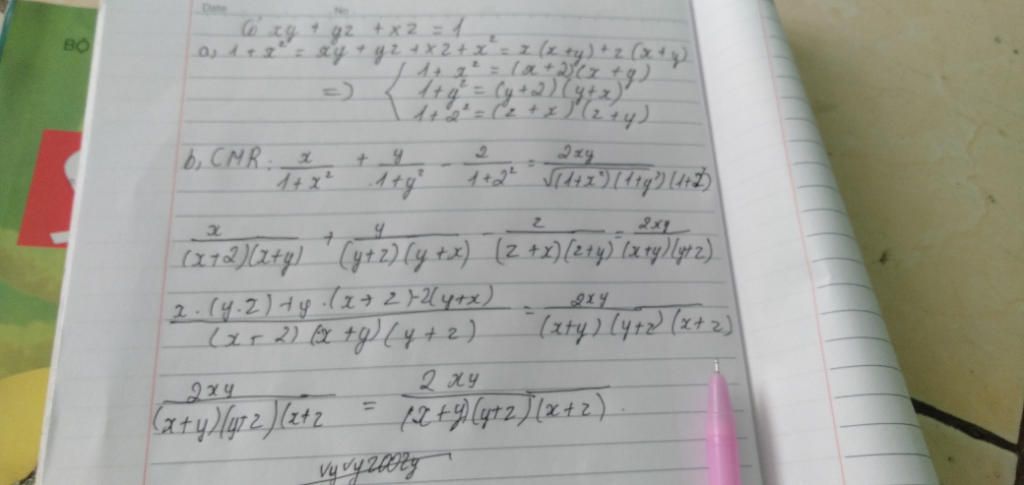 Date No
Có xy + yz + xz = 1
a, 1 + x² = xy + yz + xz + x² = x(x+y) + z(x+y)
=> { 1 + x² = (x+z)(x+y)
1 + y² = (y+z)(y+x)
1 + z² = (z+x)(z+y)
b, CMR: x/(1+x²) + y/(1+y²) - z/(1+z²) = 2xy/√((1+x²)(1+y²)(1+z²))
x/((x+z)(x+y)) + y/((y+z)(y+x)) - z/((z+x)(z+y)) = 2xy/((x+y)(y+z))
(x.(y.z) + y.(x+z) - z(y+x))/((x+z)(x+y)(y+z)) = 2xy/((x+y)(y+z)(x+z))
2xy/((x+y)(y+z)(x+z = 2xy/((x+y)(y+z)(x+z)).
BỘ